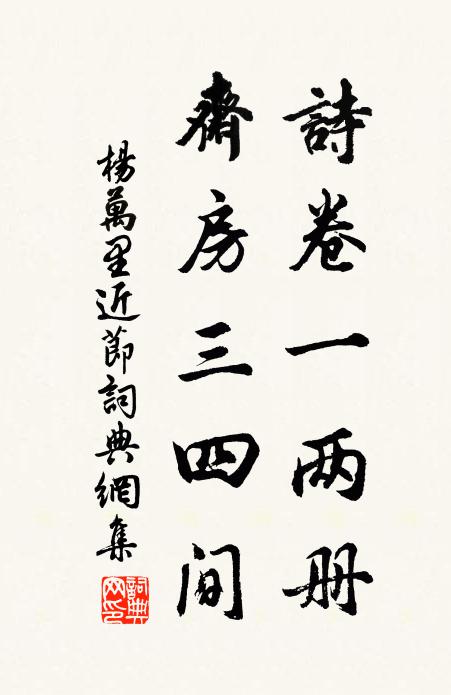 詩卷一两册
齋房三四间
楊萬里近節詞典網集
詞典網印